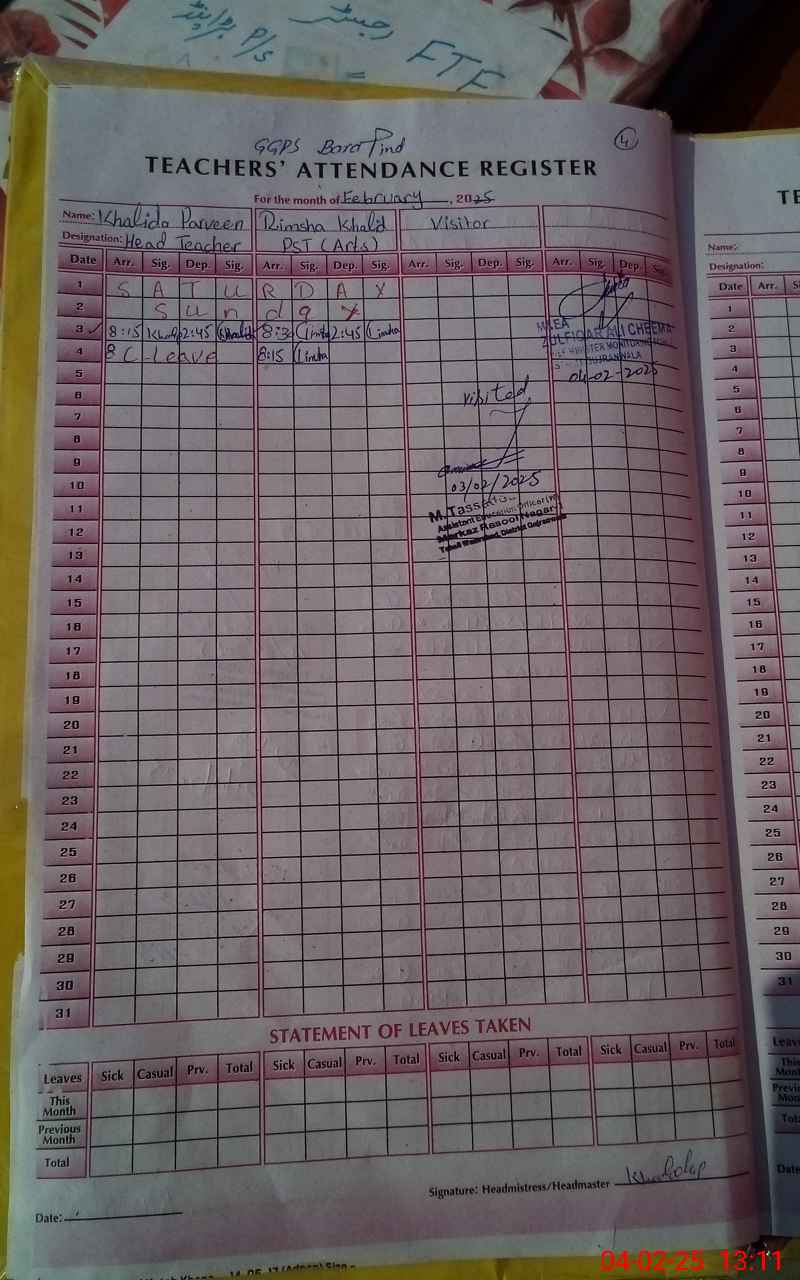 رجسٹر
FTF
P/S
=
GGPS Bara Pind
4
TEACHERS' ATTENDANCE REGISTER
For the month of February, 2025
Name: Khalida Parveen Rimsha Khalid Visitor
Designation: Head Teacher PST (Arts)
Date Arr. Sig. Dep. Sig. Arr. Sig. Dep. Sig. Arr. Sig. Dep. Sig. Arr. Sig. Dep. Sig.
1 S A T U R D A Y
2 S u n d a y
3 ✓ 8:15 2:45 8:30 2:45
4 C-Leave 8:15
5
6
7
8
9
10
11
12
13
14
15
16
17
18
19
20
21
22
23
24
25
26
27
28
29
30
31
MEA
ZULFIQAR ALI CHEEMA
GUJRANWALA
04-02-2025
visited
03/02/2025
M.Tass
Assistant Education Officer
Markaz Rasool Nagar
STATEMENT OF LEAVES TAKEN
Leaves Sick Casual Prv. Total Sick Casual Prv. Total Sick Casual Prv. Total Sick Casual Prv. Total
This Month
Previous Month
Total
Signature: Headmistress/Headmaster Khalidap
Date:
TE
Name:
Designation:
Date Arr. S
1
2
3
4
5
6
7
8
9
10
11
12
13
14
15
16
17
18
19
20
21
22
23
24
25
26
27
28
29
30
31
Leave
This
Mont
Previo
Mon
Tot
Date
04-02-25 13:11